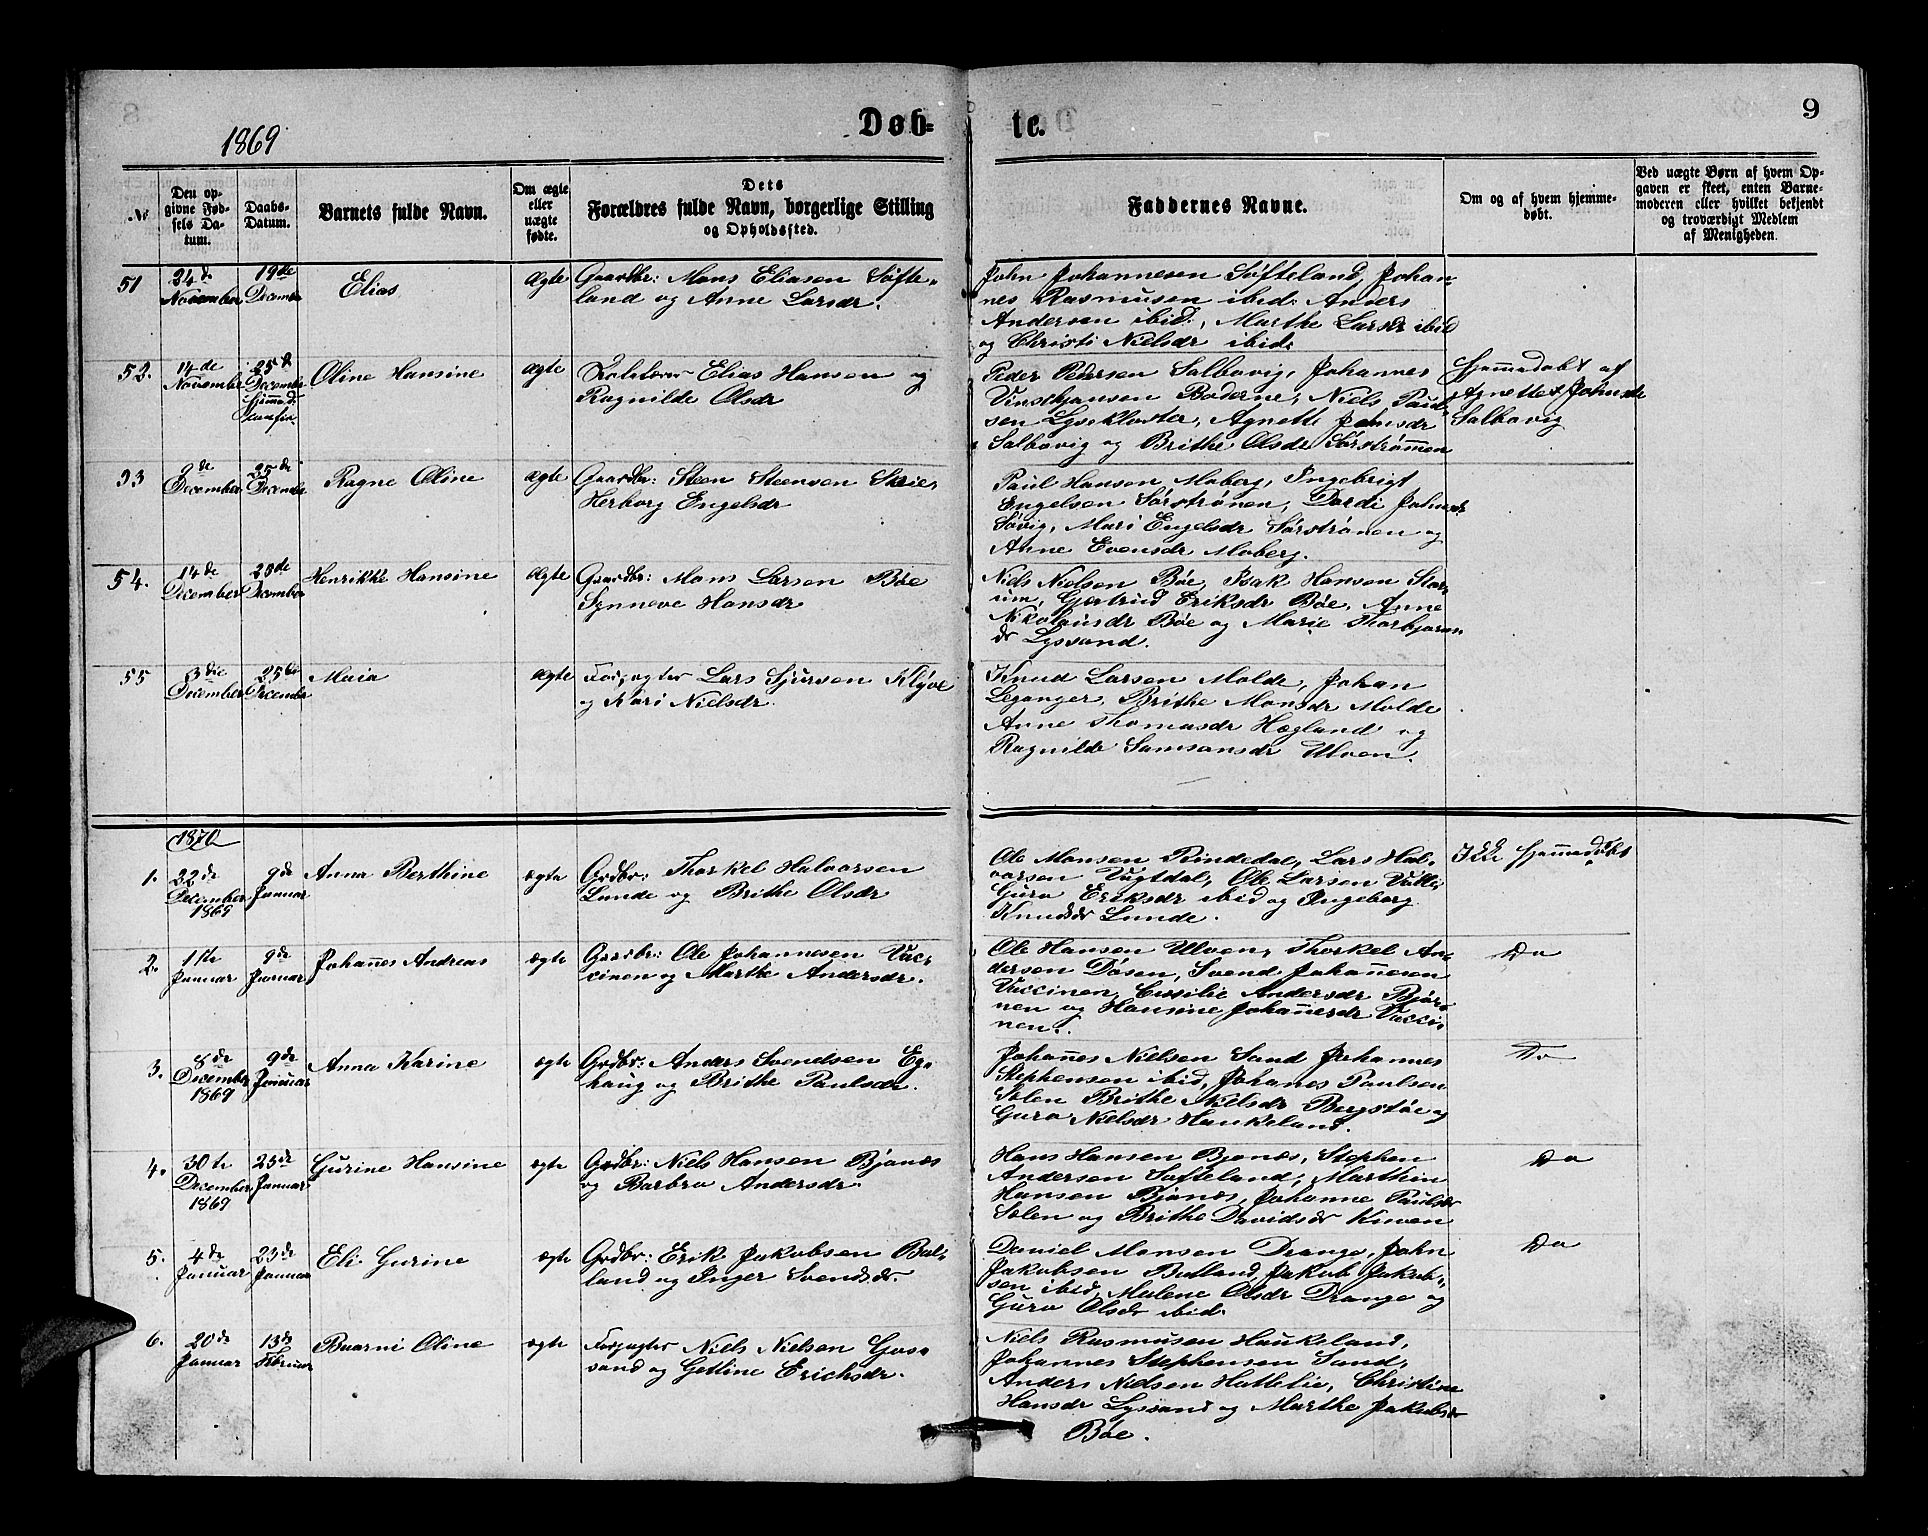 Døb-
te.
9
1869
№
Den op-
givne Fød-
sels Da-
tum.
Daabs-
Datum.
Barnets fulde Navn.
Om ægte
eller
uægte
fødte.
Dets
Forældres fulde Navn, borgerlige Stilling
og Opholdssted.
Faddernes Navne.
Om og af hvem hjemme-
døbt.
Ved uægte Børn af hvem Op-
gaven er skeet, enten Barne-
moderen eller hvilket bekjendt
og troværdigt Medlem
af Menigheden.
51
24de
November
19de
December
Elias
ægte
Gaardbr: Mons Eliasen Søfte-
land og Anne Larsdr.
John Johannesen Søfteland, Johan-
nes Rasmusen ibid: Anders
Andersen ibid:, Marthe Larsdr ibid
og Christi Nielsdr ibid.
52.
14de
November
25de
December
Oline Hansine
ægte
Elias Hansen og
Ragnilde Olsdr
Peder Pedersen Salbovig, Johannes
Boderne, Niels Paul-
sen Lysekloster, Agnethe Johnsdr
Salbovig og Brithe Olsdr Sørstrømmen
Hjemmedøbt af
Agnethe Johnsdr
Salbovig
53
2de
December
25de
December
Ragne Oline
ægte
Gaardbr: Steen Steensen Skeie,
Herborg Engelsdr
Paul Hansen Moberg, Ingebrigt
Engelsen Sørstrønen, Dordi Johnsdr
Søvig, Mari Engelsdr Sørstrønen og
Anne Evensdr Moberg.
54.
14de
December
28de
December
Henrikke Hansine
ægte
Gaardbr: Mons Larsen Bøe
Synneve Hansdr
Niels Nielsen Bøe, Isak Hansen Stor-
um, Gjertrud Eriksdr Bøe, Anne
Nikolausdr Bøe og Marie Thorbjørns
dr Lyssand.
55
3die
December
25de
December
Maia
ægte
Forpagter Lars Sjursen Klyve
og Kari Nielsdr.
Knud Larsen Molde, Johan
Leganger, Brithe Monsdr Molde
Anne Thomasdr Hægland og
Ragnilde Samsonsdr Ulven.
1870
1.
22de
December
1869
9de
Januar
Anna Berthine
ægte
Grdbr: Thorkel Halvorsen
Lunde og Brithe Olsdr
Ole Monsen Rindedal, Lars Hal-
vorsen Vugtdal, Ole Larsen Valle,
Guro Eriksdr ibid og Ingeborg
Knudsdr Lunde.
Ikke hjemmedøbt
2.
1ste
Januar
9de
Januar
Johañes Andreas
ægte
Gaardbr: Ole Johannesen Vac-
cinen og Marthe Andersdr.
Ole Hansen Ulven, Thorkel An-
dersen Døsen, Svend Johañesen
Vaccinen, Cissilie Andersdr Bjør-
nen og Hansine Johañesdr Vacci-
nen.
Do
3.
8de
December
1869
9de
Januar
Anna Karine
ægte
Grdbr: Anders Svendsen Eg-
haug og Brithe Paulsdr.
Johañes Nielsen Sand Johannes
Stephensen ibid, Johanes Paulsen
Solen Brithe Nielsdr Bergstøe og
Guro Nielsdr Haukeland.
Do
4.
30te
December
1869
23de
Januar
Gurine Hansine
ægte
Grdbr: Niels Hansen Bjonæs
og Barbro Andersdr.
Hans Hansen Bjonæs, Stephen
Andersen Søfteland, Marthin
Hansen Bjonæs, Johanne Paulsdr
Solen og Brithe Davidsdr Kuven
Do
5.
4de
Januar
23de
Januar
Eli Gurine
ægte
Grdbr: Erik Jakobsen But-
land og Inger Svendsdr.
Daniel Monsen Drange, John
Jakobsen Butland, Jakob Jakob-
sen ibid, Malene Olsdr Drange og
Guro Olsdr ibid.
Do
6.
20de
Januar
13de
Februar
Buarni Oline
ægte
Forpagter Niels Nielsen Gaas-
sand og Getline Erichsdr.
Niels Rasmusen Haukeland,
Johannes Stephensen Sand,
Anders Nielsen Hattelie, Christine
Hansdr Lyssand og Marthe Jakobsdr
Bøe.